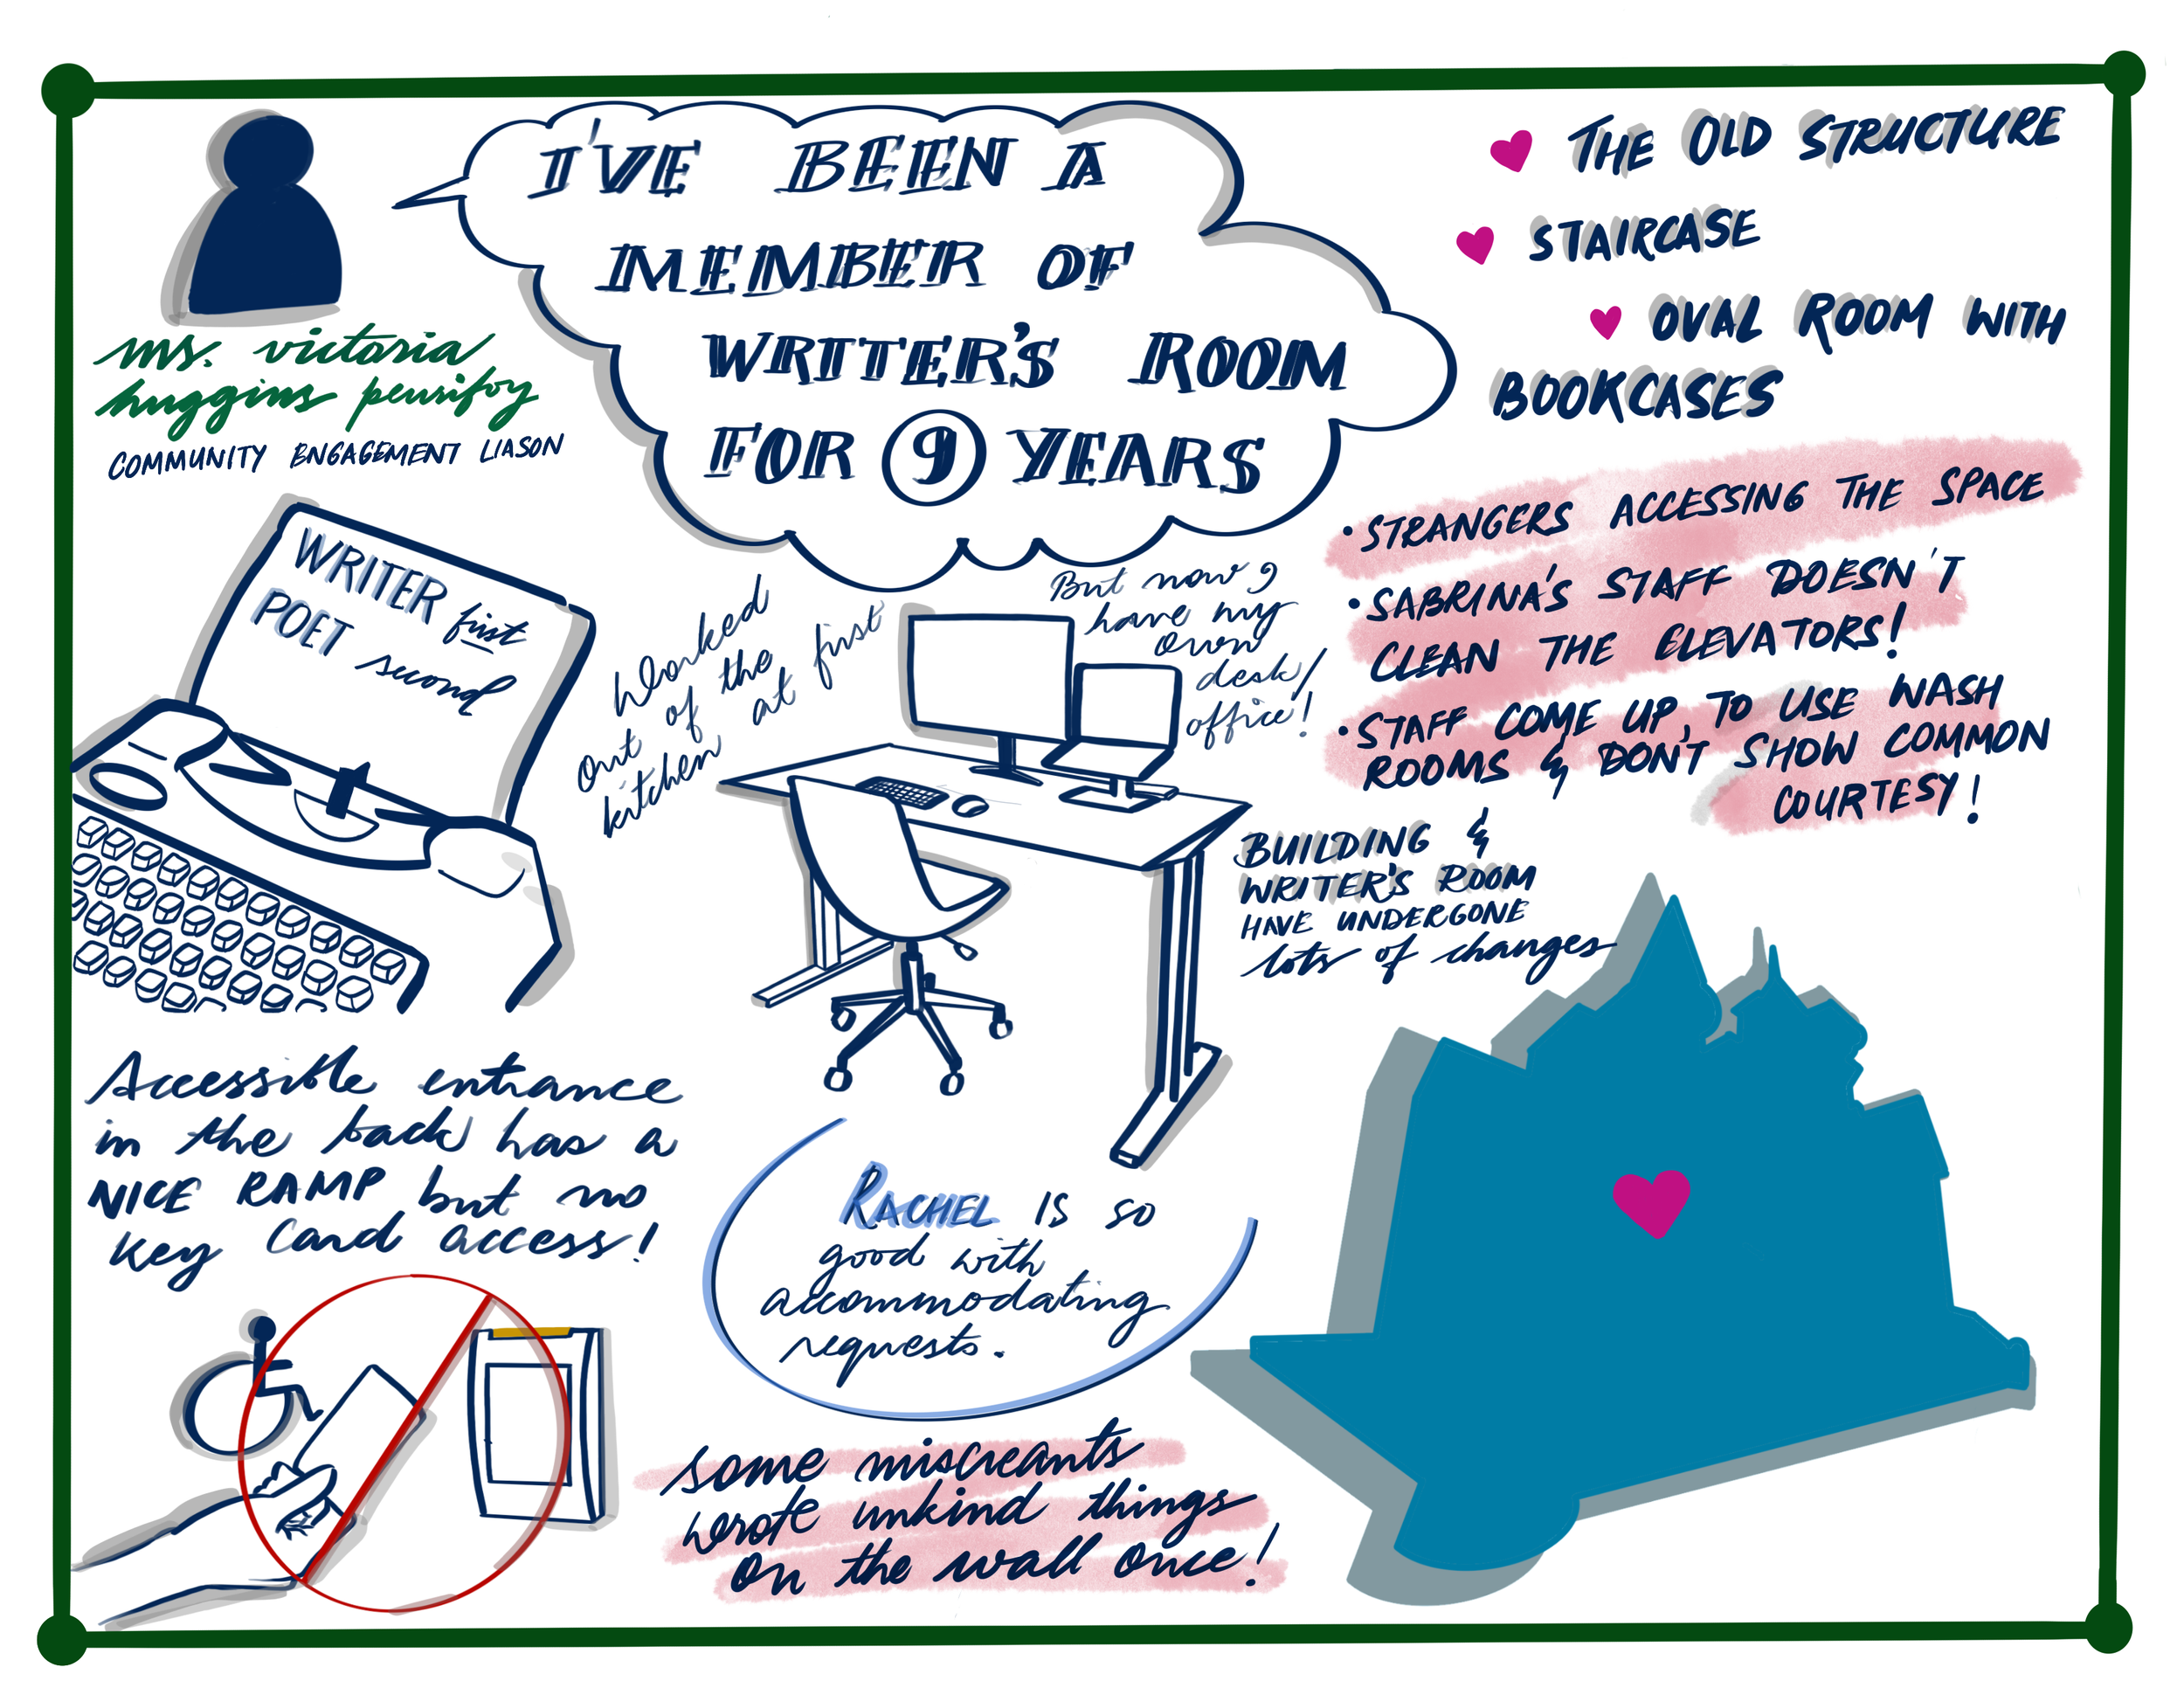 I'VE BEEN A
MEMBER OF
WRITER'S ROOM
FOR 9 YEARS
ms. victoria
huggins peurifoy
COMMUNITY ENGAGEMENT LIASON
THE OLD STRUCTURE
STAIRCASE
OVAL ROOM WITH
BOOKCASES
• STRANGERS ACCESSING THE SPACE
• SABRINA'S STAFF DOESN'T
CLEAN THE ELEVATORS!
• STAFF COME UP, TO USE WASH
ROOMS & DON'T SHOW COMMON
COURTESY!
WRITER first
POET second
Worked
out of the
kitchen at first
But now I
have my
own
desk/
office!
BUILDING &
WRITER'S ROOM
HAVE UNDERGONE
lots of changes
Accessible entrance
in the back has a
NICE RAMP but no
key Card access!
RACHEL IS SO
good with
accommodating
requests.
some miscreants
wrote unkind things
on the wall once!